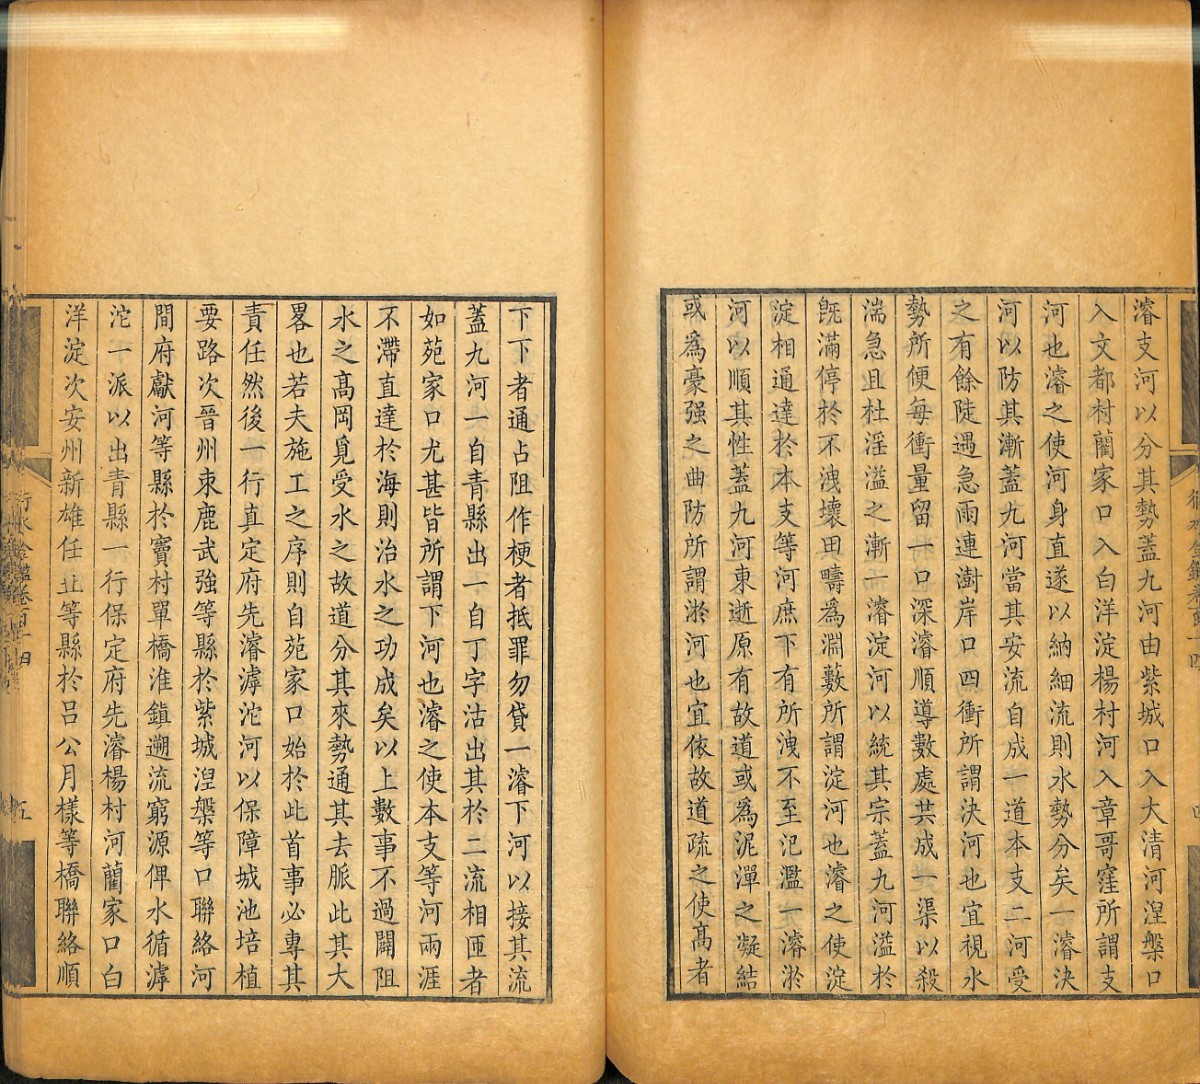 濬支河以分其勢蓋九河由紫城口入大清河湼槃口
入文都村藺家口入白洋淀楊村河入章哥窪所謂支
河也濬之使河身直遂以納細流則水勢分矣一濬決
河以防其漸蓋九河當其安流自成一道本支二河受
之有餘陡遇急雨連澍岸口四衝所謂決河也宜視水
勢所便每衝量留一口深濬順導數處共成一渠以殺
湍急且杜淫溢之漸一濬淀河以統其宗蓋九河溢於
旣滿停於不洩壞田疇爲淵藪所謂淀河也濬之使淀
淀相通達於本支等河庶下有所洩不至氾濫一濬淤
河以順其性蓋九河東逝原有故道或爲泥潬之凝結
或爲豪强之曲防所謂淤河也宜依故道疏之使高者
下下者通占阻作梗者抵罪勿貸一濬下河以接其流
蓋九河一自青縣出一自丁字沽出其於二流相匝者
如苑家口尤甚皆所謂下河也濬之使本支等河兩涯
不滯直達於海則治水之功成矣以上數事不過闢阻
水之高岡覓受水之故道分其來勢通其去脈此其大
畧也若夫施工之序則自苑家口始於此首事必專其
責任然後一行真定府先濬滹沱河以保障城池培植
要路次晉州束鹿武強等縣於紫城湼槃等口聯絡河
間府獻河等縣於竇村單橋淮鎮遡流窮源俾水循滹
沱一派以出青縣一行保定府先濬楊村河藺家口白
洋淀次安州新雄任丘等縣於呂公月樣等橋聯絡順
行水金鑑卷百十四
五